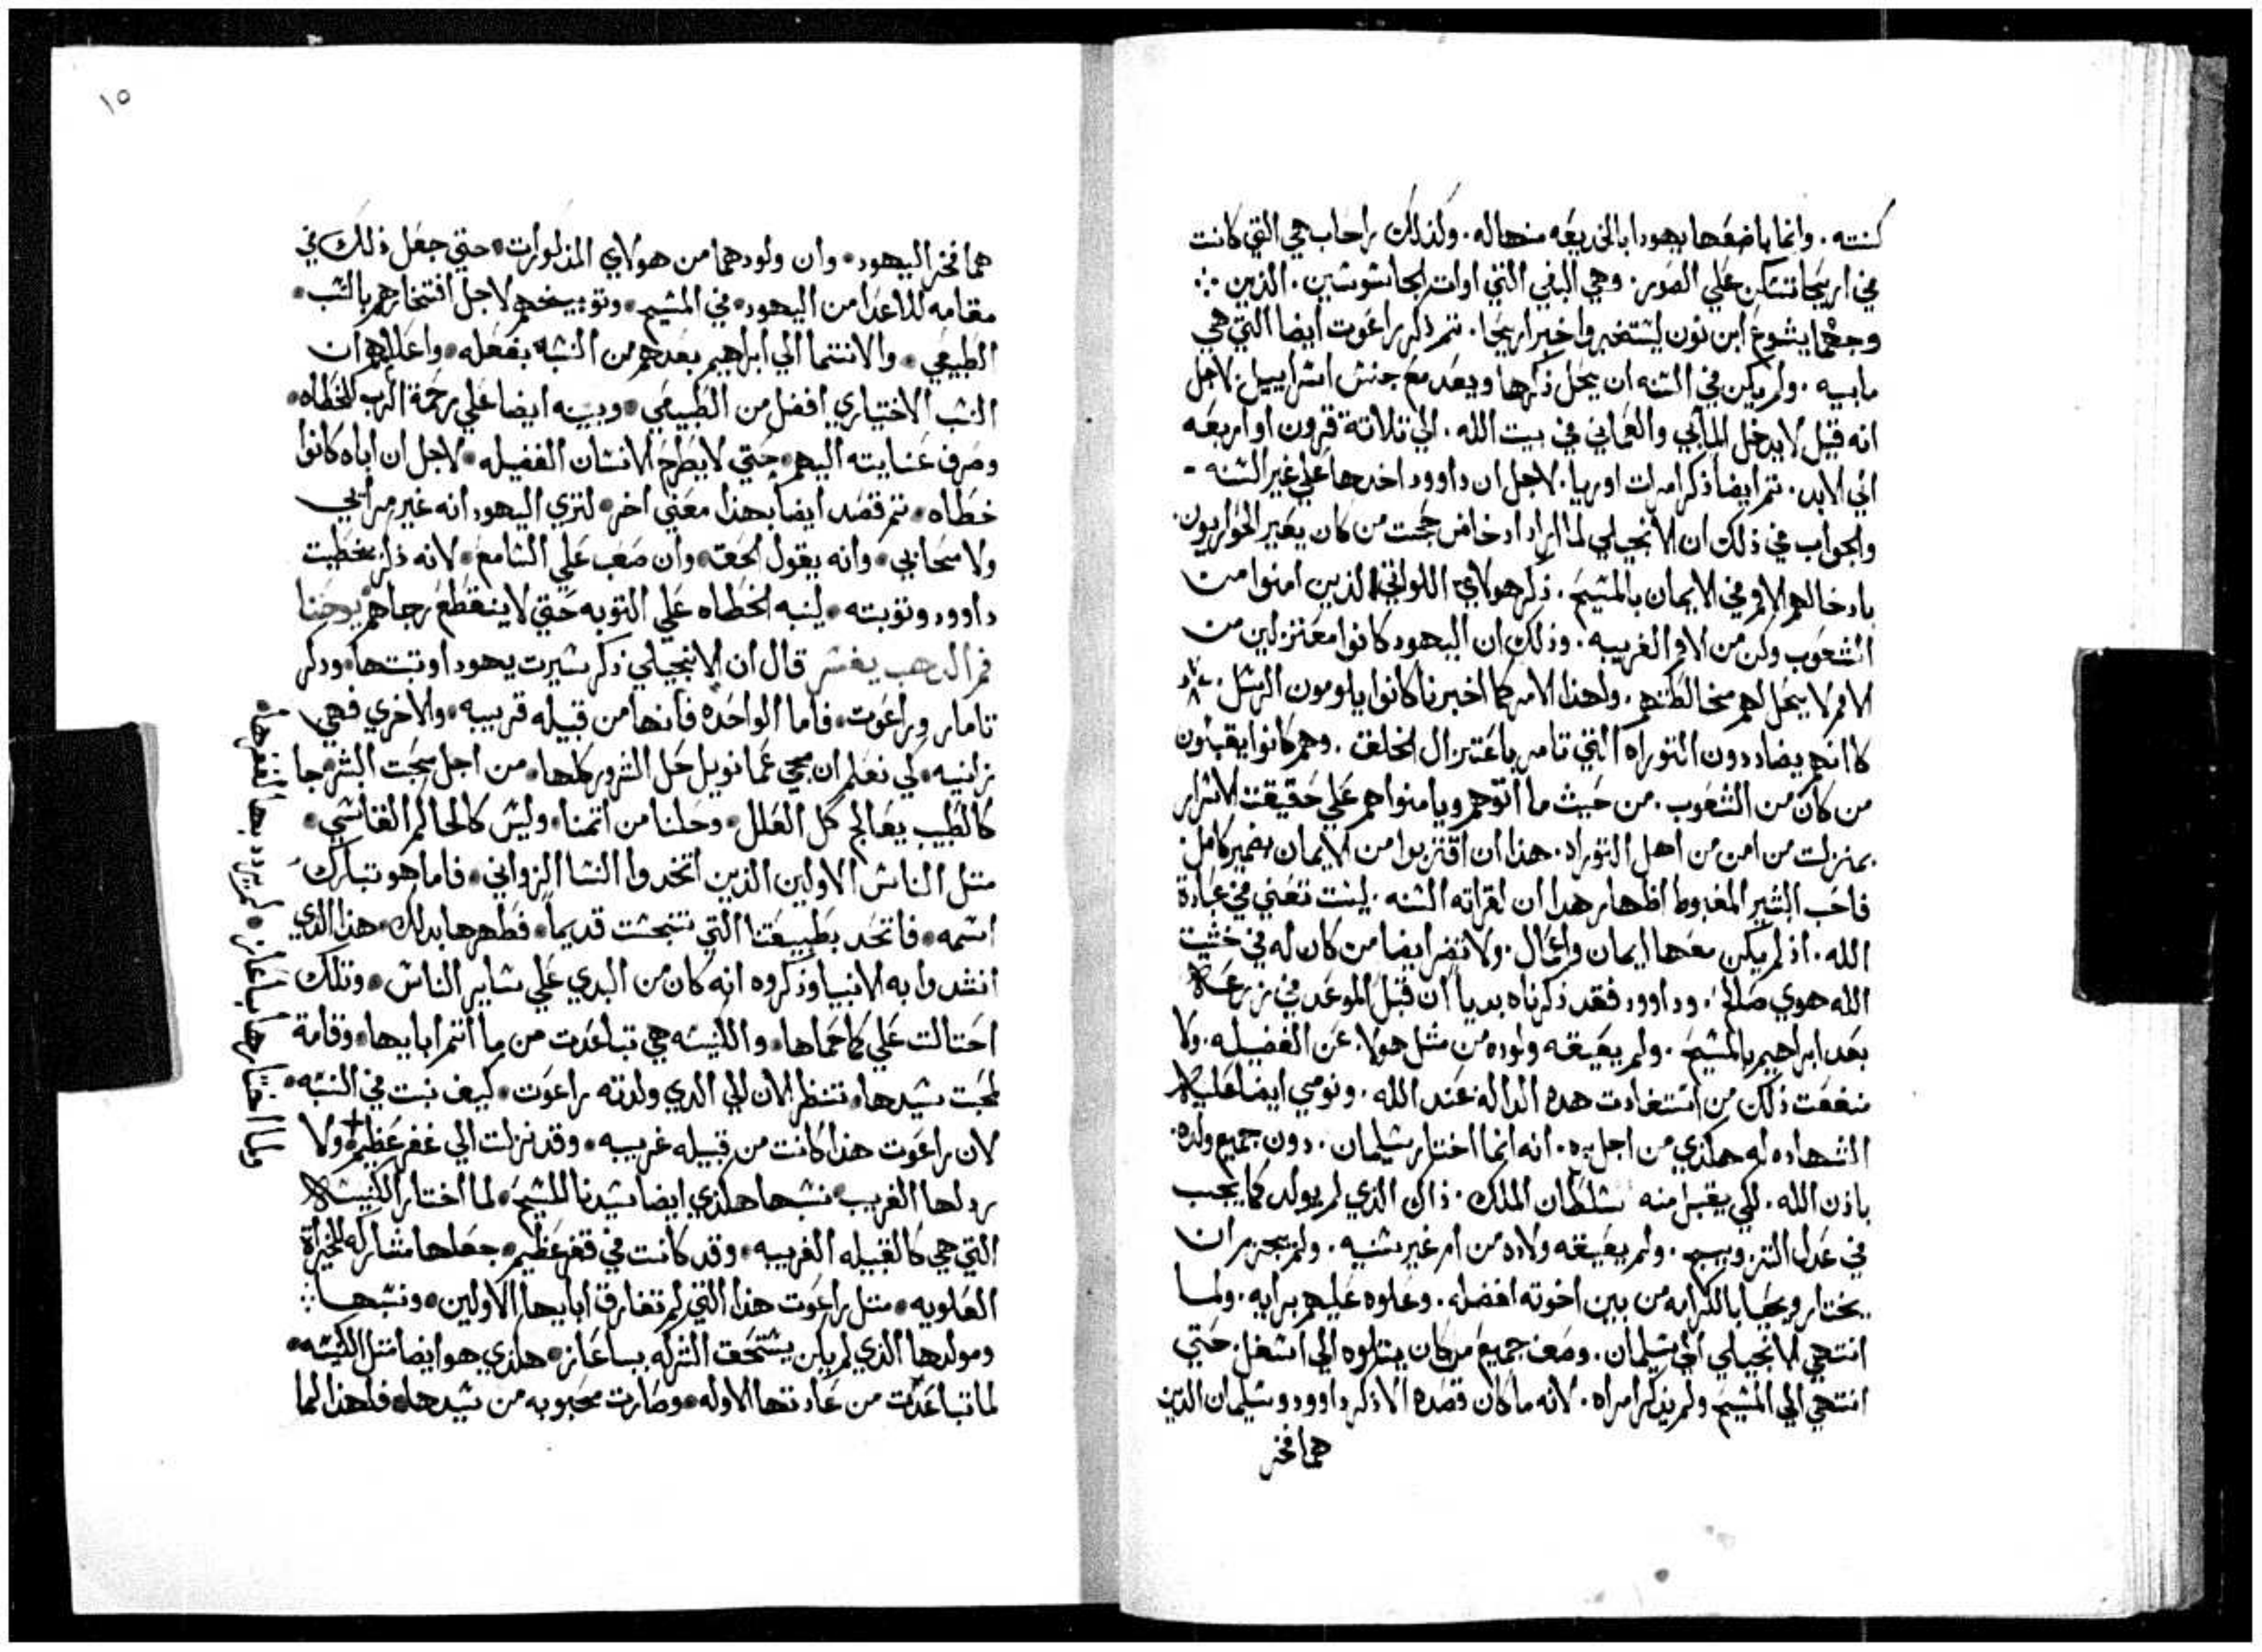 كنته. وانما باضعها يهودا بالخديعه منها له. ولذلك راحاب هي التي كانت
في اريحا تسكن علي الصور. وهي البغي التي اوات الجاسوسين. الذين
وجهما يشوع ابن نون ليستخبروا خبر اريحا. تم ذكر راعوت ايضا التي هي
مابيه. ولم يكن في السنه ان يحل ذكرها ويعد مع جنس اسراييل. لاجل
انه قيل لا يدخل المابي والعماني في بيت الله. الي تلاتة قرون او اربعه
الي الابد. تم ايضا ذكر امرات اوريا. لاجل ان داوود اخدها علي غير السنه
والجواب في ذلك ان الانجيلي لما اراد ادحاض حجت من كان يعير الحواريون
بادخالهم الامم في الايمان بالمسيح. ذكر هولاي اللواتي الذين امنوا من
الشعوب وكن من الامم الغريبه. وذلك ان اليهود كانوا معتزلين من
الامم لا يحل لهم مخالطتهم. ولهذا الامر كما اخبرنا كانوا يلومون الرسل.
كاانهم يضاددون التوراه التي تامر باعتزال الخلف. وهم كانوا يقبلون
من كان من الشعوب. من حيت ما اتوهم ويامنواهم علي حقيقت الاسرار
بمنزلت من امن من اهل التوراه. هذا ان اقتربوا من الايمان بضمير كامل
فاحب البشير المغبوط اظهار هدا ان لقراته السنه. ليست تغني في عبادة
الله. اذ لم يكن معها ايمان واعمال. ولا تضر ايضا من كان له في خشيت
الله هوي صالح. وداوود فقد ذكرناه بدياً ان قبل الموعد في زرعه
بعد ابراهيم بالمسيح. ولم يعيقه ولوده من متل هولا. عن الفضيله. ولا
منعت ذلك من استفادت هده الداله عند الله. ونومي ايضا قليلا
الشهاده له هكذي من اجل بره. انه انما اختار سليمان. دون جميع ولده.
باذن الله. لكي يقبل منه سلطان الملك. ذاك الذي لم يولد كما يجب
في عدل التزويج. ولم يعيقه ولاده من ام غير سنيه. ولم يحرم ان
يختار ويحبا بالكرامه من بين اخوته افضله. وعلوه عليهم برايه. ولما
انتهي الانجيلي الي سليمان. وصف جميع من كان يتلوه الي اسفل. حتي
انتهي الي المسيح ولم يذكر امراه. لانه ما كان قصده الا ذكر داوود وسليمان الذين
هما فخر
١٥
هما فخر اليهود. وان ولودهما من هولاي المذكورات. حتي جعل ذلك في
مقامه للاعدا من اليهود. في المسيح. وتوبيخهم لاجل افتخارهم بالنسب.
الطبيعي. والانتما الي ابراهيم بعدهم من التشبه بفعله. واعلاهم ان
النسب الاختياري افضل من الطبيعي. وبينه ايضا علي رحمة الرب للخطاه.
وصرف عنايته اليهم. حتي لا يطرح الانسان الفضيله. لاجل ان اباه كانوا
خطاه. تم قصد ايضا بهذا معني اخر. لتري اليهود انه غير مرايي
ولا محابي. وانه يقول الحق. وان صعب علي السامع. لانه ذكر بخطيت
داوود وتوبته. لينبه الخطاه علي التوبه حتي لا ينقطع رجاهم يوحنا
فم الدهب يفسر قال ان الانجيلي ذكر سيرت يهودا وتبتها. ودكر
تامار وراعوت. فاما الواحده فانها من قبيله قريبه. والاخري فهي
زانيه. لكي نعلم ان مجي عمانويل حل الشرور كلها. من اجل محبت البشر جا
كالطبيب يعالج كل العلل. وحلنا من اتمنا. وليس كالحاكم القاسي.
متل الناس الاولين الذين اتخدوا النسا الزواني. فاما هو تبارك
اسمه. فاتحد بطبيعتنا التي تنجست قديماً. فطهرها بدلك. هذا الذي
انشدوا به الانبيا وذكروه انه كان من البدي علي ساير الناس. وتلك
احتالت علي كا حماها. والكنيسه هي تباعدت من مااتم ابايها. وقامة
لمحبت سيدها. تنظر الان الي الدي ولدته راعوت. كيف نبت في النسبه.
لان راعوت هذا كانت من قبيله غريبه. وقد نزلت الي غفر عظيم. ولا
ردلها الغريب. نسبها هكذي ايضا سيدنا المسيح. لما اختار الكنيسه
التي هي كالقبيله الغريبه. وقد كانت في قفر عظيم. جعلها مشاركه للخيراة
العلويه. متل راعوت هذا التي لم تفارق ابايها الاولين. ونسبها
ومولدها الذي لم يكن يستحق الشركه بساعاز. هكذي هو ايضا متل الكنيسه.
لما تباعدت من عادتها الاوله. وصارت محبوبه من سيدها. فلهذا لما
ولما افتقارها بساعاز. لم يردد بها لفقرها.